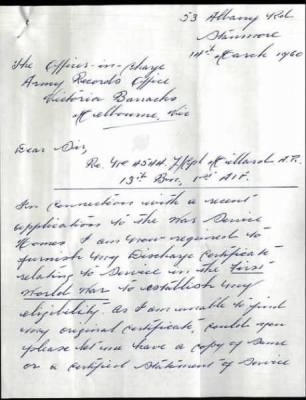 53 Albany Rd
Stanmore
14th March 1960
The Officer-in-charge
Army Records Office
Victoria Barracks
Melbourne, Vic
Dear Sir,
Re. Millard A.P.
13th Bn, 1st AIF.
In connection with a recent
application to the War Service
Homes I am now required to
furnish my Discharge Certificate
relating to service in the First
World War to establish my
eligibility. As I am unable to find
my original certificate, could you
please let me have a copy of same
or a certified statement of service